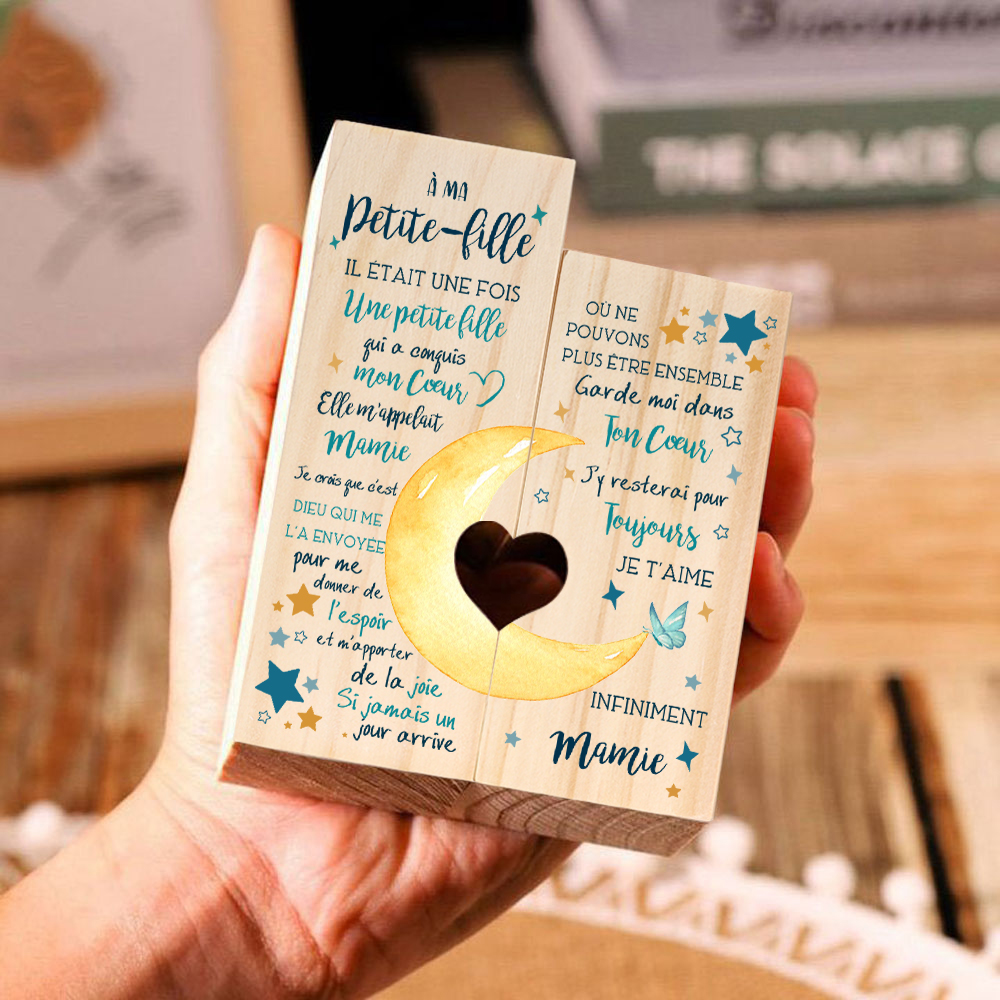 À MA
Petite-fille
IL ÉTAIT UNE FOIS
Une petite fille
qui a conquis
mon Cœur
Elle m'appelait
Mamie
Je crois que c'est
DIEU QUI ME
L'A ENVOYÉE
pour me
donner de
l'espoir
et m'apporter
de la joie
Si jamais un
jour arrive
OÙ NE
POUVONS
PLUS ÊTRE ENSEMBLE
Garde moi dans
Ton Cœur
J'y resterai pour
Toujours
JE T'AIME
INFINIMENT
Mamie
THE SOLACE